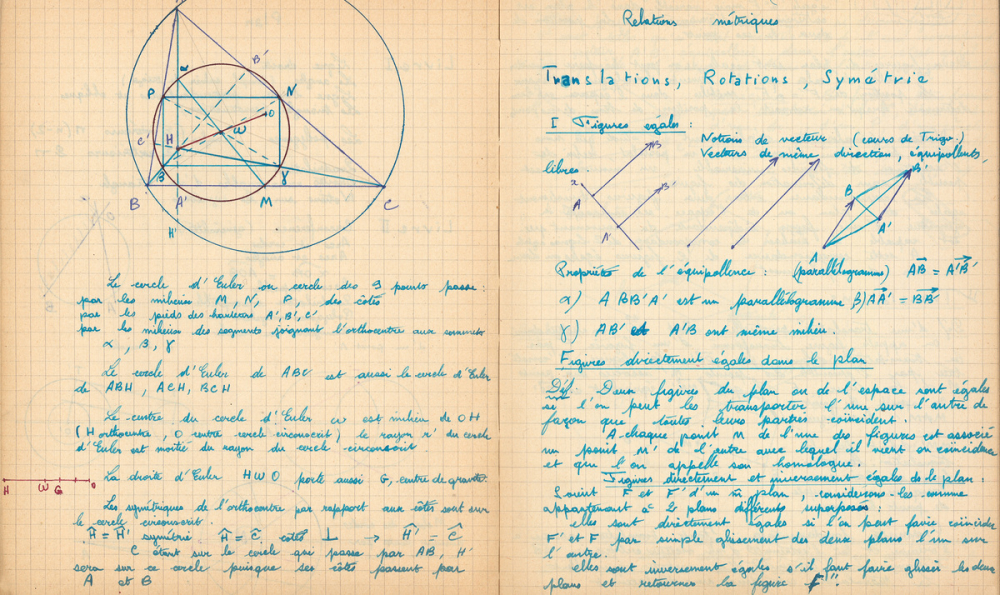 B'
α
P
N
O
ω
C'
H
β
γ
B
A'
M
C
H'
Le cercle d'Euler ou cercle des 9 points passe :
par les milieux M, N, P, des côtés
par les pieds des hauteurs A', B', C'
par les milieux des segments joignant l'orthocentre aux sommets
α, β, γ
Le cercle d'Euler de ABC est aussi le cercle d'Euler
de ABH, ACH, BCH
Le centre du cercle d'Euler ω est milieu de OH
(H orthocentre, O centre cercle circonscrit) le rayon r' du cercle
d'Euler est moitié du rayon du cercle circonscrit
La droite d'Euler HWO porte aussi G, centre de gravité.
H W G O
Les symétriques de l'orthocentre par rapport aux côtés sont sur
le cercle circonscrit.
Ĥ = Ĥ' symétrie Ĥ = Ĉ, côtés ⊥ → Ĥ' = Ĉ
C étant sur le cercle qui passe par AB, H'
sera sur ce cercle puisque ses côtés passent par
A et B
Relations métriques
Translations, Rotations, Symétrie
I Figures égales :
Notions de vecteur (cours de Trigo.)
Vecteurs de même direction, équipollents,
libres.
x
B
A
B'
A'
B
B'
A'
Propriétés de l'équipollence : (parallélogramme) AB = A'B'
α) A BB'A' est un parallélogramme β) AA' = BB'
γ) AB' et A'B ont même milieu.
Figures directement égales dans le plan
Déf. Deux figures du plan ou de l'espace sont égales
si l'on peut les transporter l'une sur l'autre de
façon que toutes leurs parties coïncident.
A chaque point M de l'une des figures est associé
un point M' de l'autre avec lequel il vient en coïncidence
et que l'on appelle son homologue.
Figures directement et inversement égales de le plan :
Soient F et F' d'un m̂ plan, considérons-les comme
appartenant à 2 plans différents superposés :
elles sont directement égales si l'on peut faire coïncider
F' et F par simple glissement des deux plans l'un sur
l'autre.
elles sont inversement égales s'il faut faire glisser les deux
plans et retourner la figure F'.